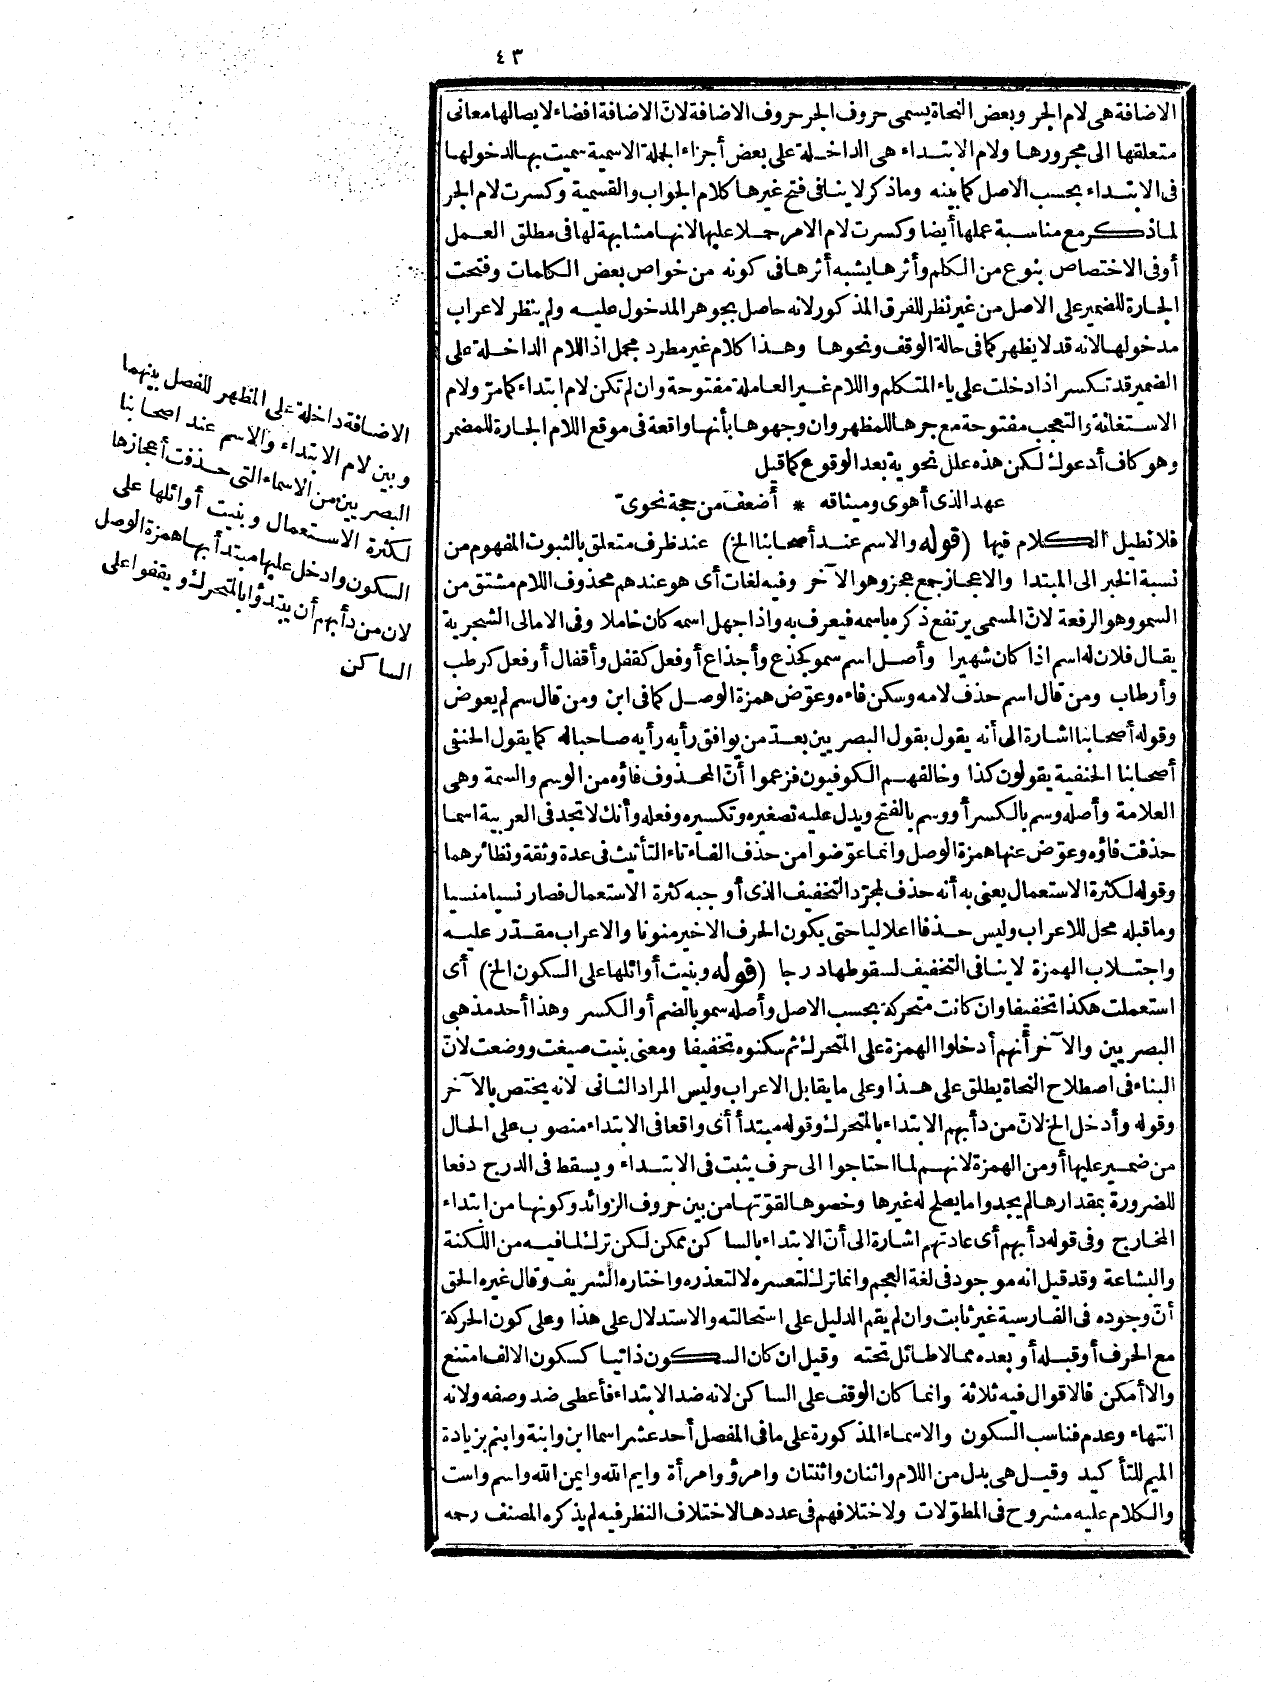 ٤٣
الاضافة هى لام الجر وبعض النحاة يسمى حروف الجر حروف الاضافة لانّ الاضافة افضاء لايصالها معانى
متعلقها الى مجرورها ولام الابتداء هى الداخلة على بعض أجزاء الجملة الاسمية سميت بها لدخولها
فى الابتداء بحسب الاصل كما بينه وما ذكر لا ينافى فتح غيرها كلام الجواب والقسمية وكسرت لام الجر
لما ذكر مع مناسبة عملها أيضا وكسرت لام الامر حملا عليها لانها مشابهة لها فى مطلق العمل
أو فى الاختصاص بنوع من الكلم وأثرها يشبه أثرها فى كونه من خواص بعض الكلمات وفتحت
الجارة للضمير على الاصل من غير نظر للفرق المذكور لانه حاصل بجوهر المدخول عليه ولم ينظر لاعراب
مدخولها لانه قد لا يظهر كما فى حالة الوقف ونحوها وهذا كلام غير مطرد مجمل اذ اللام الداخلة على
الضمير قد تكسر اذا دخلت على ياء المتكلم واللام غير العاملة مفتوحة وان لم تكن لام ابتداء كما مرّ ولام
الاستغاثة والتعجب مفتوحة مع جرها للمظهر وان وجهوها بأنها واقعة فى موقع اللام الجارة للمضمر
وهو كاف أدعوك لكن هذه علل نحوية بعد الوقوع كما قيل
عهد الذى أهوى وميثاقه * أضعف من حجة نحوىّ
فلا نطيل الكلام فيها (قوله والاسم عند أصحابنا الخ) عند ظرف متعلق بالثبوت المفهوم من
نسبة الخبر الى المبتدا والاعجاز جمع عجز وهو الآخر وفيه لغات أى هو عندهم محذوف اللام مشتق من
السمو وهو الرفعة لانّ المسمى يرتفع ذكره باسمه فيعرف به واذا جهل اسمه كان خاملا وفى الامالى الشجرية
يقال فلان له اسم اذا كان شهيرا وأصل اسم سمو كجذع وأجذاع أو فعل كقفل وأقفال أو فعل كرطب
وأرطاب ومن قال اسم حذف لامه وسكن فاءه وعوّض همزة الوصل كما فى ابن ومن قال سم لم يعوض
وقوله أصحابنا اشارة الى أنه يقول بقول البصريين بعدّ من يوافق رأيه رأيه صاحبا له كما يقول الحنفى
أصحابنا الحنفية يقولون كذا وخالفهم الكوفيون فزعموا أنّ المحذوف فاؤه من الوسم والسمة وهى
العلامة وأصله وسم بالكسر أو وسم بالفتح ويدل عليه تصغيره وتكسيره وفعله وأنك لا تجد فى العربية اسما
حذفت فاؤه وعوّض عنها همزة الوصل وانما عوّضوا من حذف الفاء تاء التأنيث فى عدة وثقة ونظائرهما
وقوله لكثرة الاستعمال يعنى به أنه حذف لمجرّد التخفيف الذى أوجبه كثرة الاستعمال فصار نسيا منسيا
وما قبله محل للاعراب وليس حذفا اعلاليا حتى يكون الحرف الاخير منونا والاعراب مقدّر عليه
واجتلاب الهمزة لا ينافى التخفيف لسقوطها درجا (قوله وبنيت أوائلها على السكون الخ) أى
استعملت هكذا تخفيفا وان كانت متحركة بحسب الاصل وأصله سمو بالضم أو الكسر وهذا أحد مذهبى
البصريين والآخر أنهم أدخلوا الهمزة على المتحرك ثم سكنوه تخفيفا ومعنى بنيت صيغت ووضعت لانّ
البناء فى اصطلاح النحاة يطلق على هذا وعلى ما يقابل الاعراب وليس المراد الثانى لانه يختص بالآخر
وقوله وأدخل الخ لانّ من دأبهم الابتداء بالمتحرك وقوله مبتدأ أى واقعا فى الابتداء منصوب على الحال
من ضمير عليها أو من الهمزة لانهم لما احتاجوا الى حرف يثبت فى الابتداء ويسقط فى الدرج دفعا
للضرورة بمقدارها لم يجدوا ما يصلح له غيرها وخصوها لقوّتها من بين حروف الزوائد وكونها من ابتداء
المخارج وفى قوله دأبهم أى عادتهم اشارة الى أنّ الابتداء بالساكن ممكن لكن ترك لما فيه من اللكنة
والبشاعة وقد قيل انه موجود فى لغة العجم وانما ترك لتعسره لا لتعذره واختاره الشريف وقال غيره الحق
أنّ وجوده فى الفارسية غير ثابت وان لم يقم الدليل على استحالته والاستدلال على هذا وعلى كون الحركة
مع الحرف أو قبله أو بعده مما لا طائل تحته وقيل ان كان السكون ذاتيا كسكون الالف امتنع
والا أمكن فالاقوال فيه ثلاثة وانما كان الوقف على الساكن لانه ضد الابتداء فأعطى ضد وصفه ولانه
انتهاء وعدم فناسب السكون والاسماء المذكورة على ما فى المفصل أحد عشر اسما ابن وابنة وابنم بزيادة
الميم للتأكيد وقيل هى بدل من اللام واثنان واثنتان وامرؤ وامرأة وايم الله وايمن الله واسم واست
والكلام عليه مشروح فى المطوّلات ولاختلافهم فى عددها لاختلاف النظر فيه لم يذكره المصنف رحمه
الاضافة داخلة على المظهر للفصل بينهما
وبين لام الابتداء والاسم عند اصحابنا
البصريين من الاسماء التى حذفت أعجازها
لكثرة الاستعمال وبنيت أوائلها على
السكون وادخل عليها مبتدأ بها همزة الوصل
لان من دأبهم أن يبتدؤا بالمتحرك ويقفوا على
الساكن